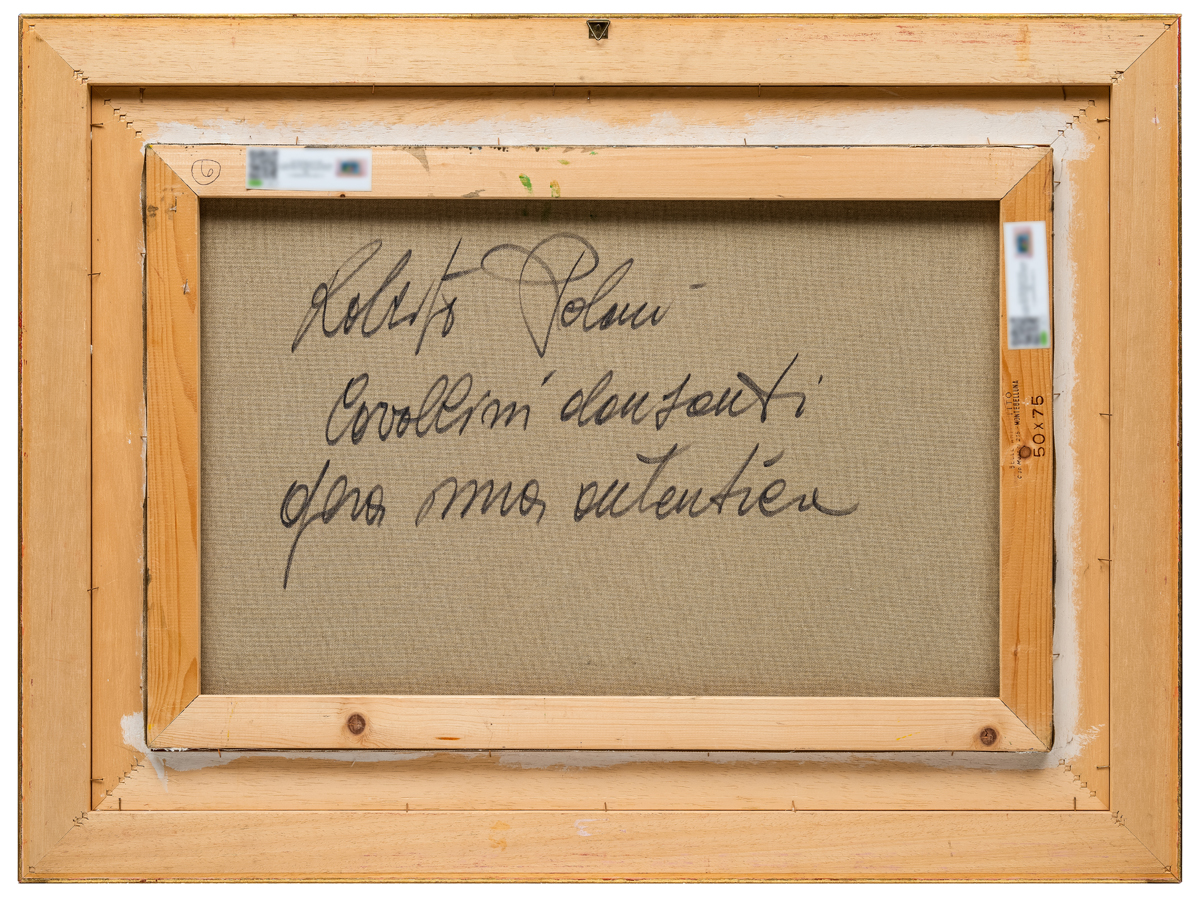 6
Roberto Polani
Cavallini danzanti
opera mia autentica
MONTEBELLUNA
50x75